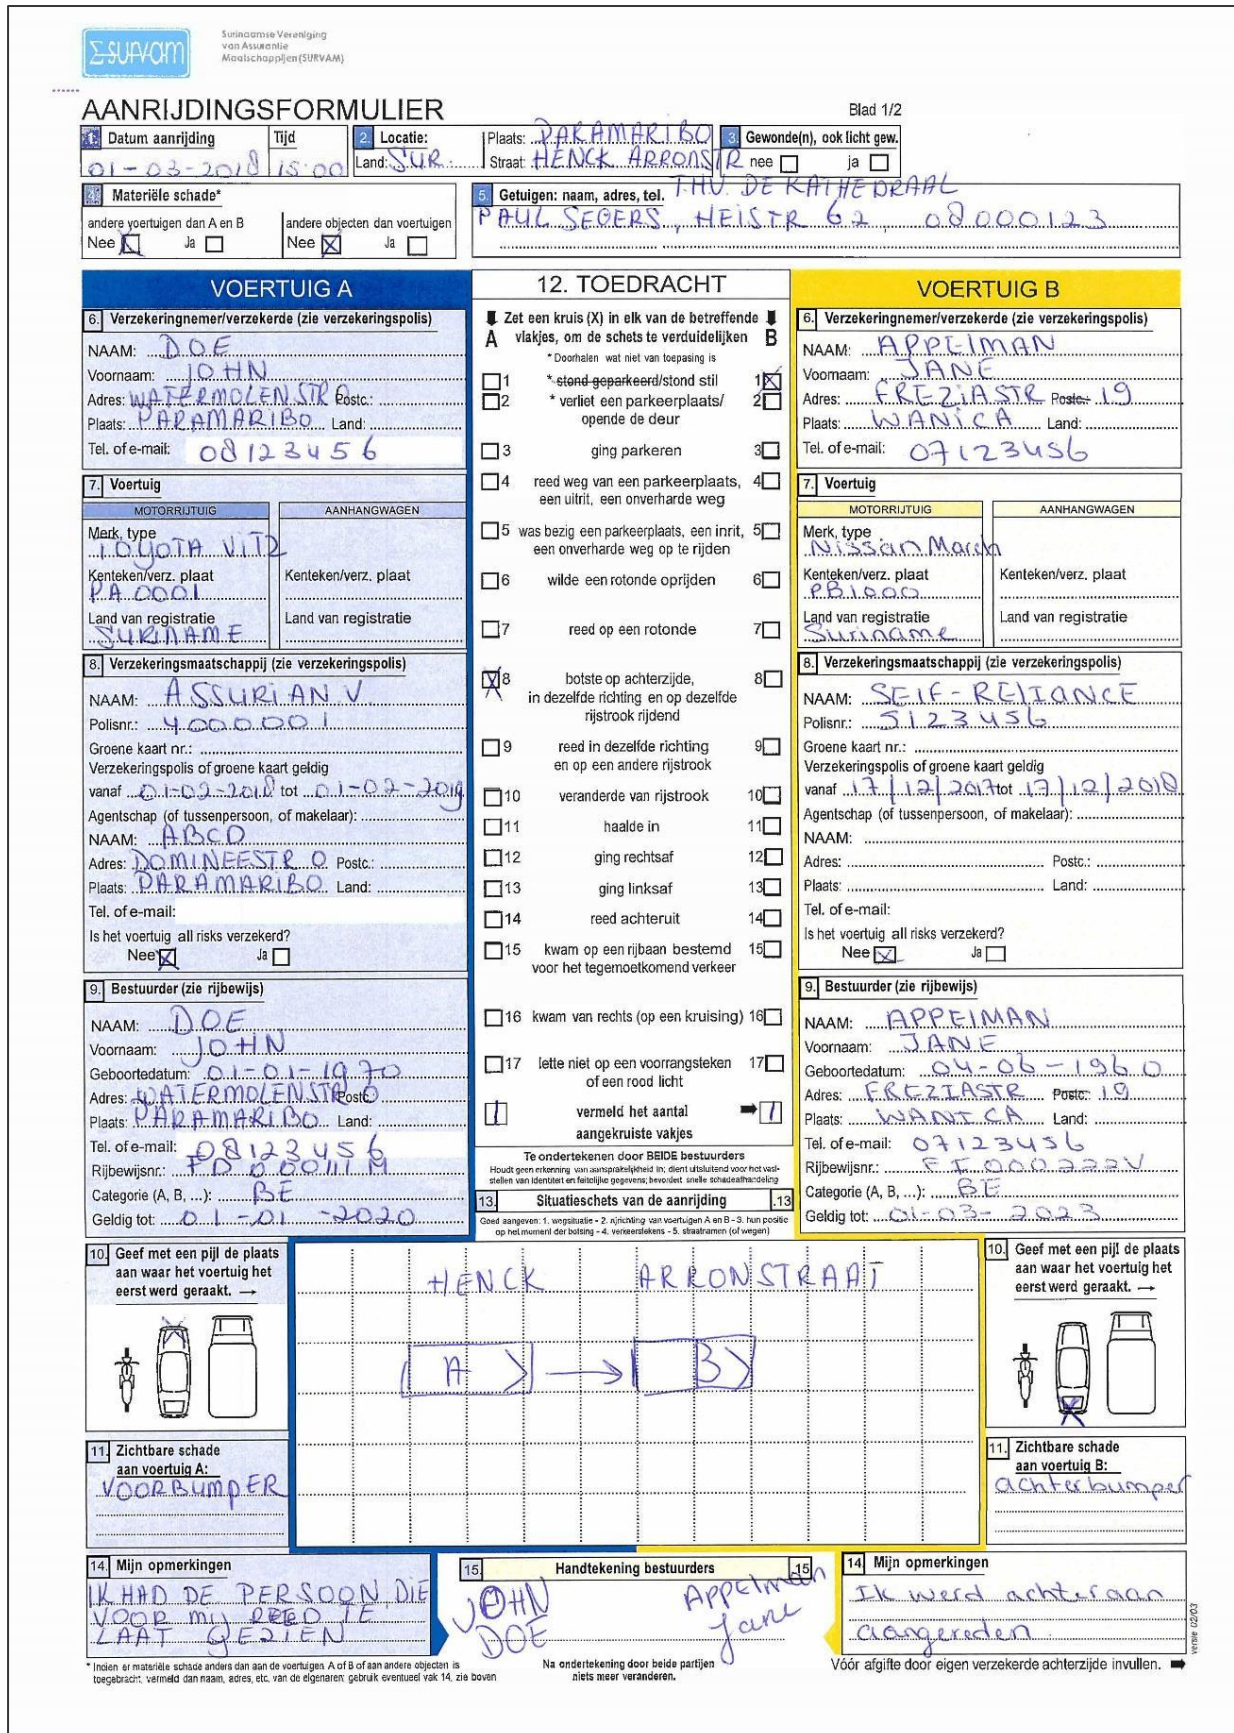 Σ SURVAM
Surinaamse Vereniging
van Assurantie
Maatschappijen (SURVAM)
AANRIJDINGSFORMULIER
Blad 1/2
1. Datum aanrijding Tijd
01-03-2018 15:00
2. Locatie: Plaats: PARAMARIBO
Land: SUR. Straat: HENCK ARRONSTR
THV. DE KATHEDRAAL
3. Gewonde(n), ook licht gew.
nee ja
4. Materiële schade*
andere voertuigen dan A en B
Nee X Ja
andere objecten dan voertuigen
Nee X Ja
5. Getuigen: naam, adres, tel.
PAUL SEGERS, HEISTR 62, 08000123
VOERTUIG A
6. Verzekeringnemer/verzekerde (zie verzekeringspolis)
NAAM: DOE
Voornaam: JOHN
Adres: WATERMOLENSTR 0 Postc.:
Plaats: PARAMARIBO Land:
Tel. of e-mail: 08123456
7. Voertuig
MOTORRIJTUIG
AANHANGWAGEN
Merk, type
TOYOTA VITZ
Kenteken/verz. plaat
PA 0001
Kenteken/verz. plaat
Land van registratie
SURINAME
Land van registratie
8. Verzekeringsmaatschappij (zie verzekeringspolis)
NAAM: ASSURIA N.V.
Polisnr.: 4000001
Groene kaart nr.:
Verzekeringspolis of groene kaart geldig
vanaf 01-02-2018 tot 01-02-2019
Agentschap (of tussenpersoon, of makelaar):
NAAM: ABCD
Adres: DOMINEESTR 0 Postc.:
Plaats: PARAMARIBO Land:
Tel. of e-mail:
Is het voertuig all risks verzekerd?
Nee X Ja
9. Bestuurder (zie rijbewijs)
NAAM: DOE
Voornaam: JOHN
Geboortedatum: 01-01-1970
Adres: WATERMOLENSTR 0 Postc
Plaats: PARAMARIBO Land:
Tel. of e-mail: 08123456
Rijbewijsnr.: FD 000111 M
Categorie (A, B, ...): BE
Geldig tot: 01-01-2020
10. Geef met een pijl de plaats
aan waar het voertuig het
eerst werd geraakt. →
11. Zichtbare schade
aan voertuig A:
VOORBUMPER
14. Mijn opmerkingen
IK HAD DE PERSOON DIE
VOOR MIJ REED TE
LAAT GEZIEN
12. TOEDRACHT
Zet een kruis (X) in elk van de betreffende
A vlakjes, om de schets te verduidelijken B
* Doorhalen wat niet van toepasing is
1 * stond geparkeerd/stond stil 1 X
2 * verliet een parkeerplaats/ 2
opende de deur
3 ging parkeren 3
4 reed weg van een parkeerplaats, 4
een uitrit, een onverharde weg
5 was bezig een parkeerplaats, een inrit, 5
een onverharde weg op te rijden
6 wilde een rotonde oprijden 6
7 reed op een rotonde 7
X 8 botste op achterzijde, 8
in dezelfde richting en op dezelfde
rijstrook rijdend
9 reed in dezelfde richting 9
en op een andere rijstrook
10 veranderde van rijstrook 10
11 haalde in 11
12 ging rechtsaf 12
13 ging linksaf 13
14 reed achteruit 14
15 kwam op een rijbaan bestemd 15
voor het tegemoetkomend verkeer
16 kwam van rechts (op een kruising) 16
17 lette niet op een voorrangsteken 17
of een rood licht
1 vermeld het aantal ➡ 1
aangekruiste vakjes
Te ondertekenen door BEIDE bestuurders
Houdt geen erkenning van aansprakelijkheid in; dient uitsluitend voor het vast-
stellen van identiteit en feitelijke gegevens; bevordert snelle schadeafhandeling
13. Situatieschets van de aanrijding .13
Goed aangeven: 1. wegsituatie - 2. rijrichting van voertuigen A en B - 3. hun positie
op het moment der botsing - 4. verkeerstekens - 5. straatnamen (of wegen)
HENCK ARRONSTRAAT
A B
15. Handtekening bestuurders 15
JOHN
DOE
Appelman
Jane
Na ondertekening door beide partijen
niets meer veranderen.
VOERTUIG B
6. Verzekeringnemer/verzekerde (zie verzekeringspolis)
NAAM: APPELMAN
Voornaam: JANE
Adres: FREZIASTR Postc.: 19
Plaats: WANICA Land:
Tel. of e-mail: 07123456
7. Voertuig
MOTORRIJTUIG
AANHANGWAGEN
Merk, type
Nissan March
Kenteken/verz. plaat
PB1000
Kenteken/verz. plaat
Land van registratie
Suriname
Land van registratie
8. Verzekeringsmaatschappij (zie verzekeringspolis)
NAAM: SELF-RELIANCE
Polisnr.: 5123456
Groene kaart nr.:
Verzekeringspolis of groene kaart geldig
vanaf 17/12/2017 tot 17/12/2018
Agentschap (of tussenpersoon, of makelaar):
NAAM:
Adres: Postc.:
Plaats: Land:
Tel. of e-mail:
Is het voertuig all risks verzekerd?
Nee X Ja
9. Bestuurder (zie rijbewijs)
NAAM: APPELMAN
Voornaam: JANE
Geboortedatum: 04-06-1960
Adres: FREZIASTR Postc: 19
Plaats: WANICA Land:
Tel. of e-mail: 07123456
Rijbewijsnr.: FI000222V
Categorie (A, B, ...): BE
Geldig tot: 01-03-2023
10. Geef met een pijl de plaats
aan waar het voertuig het
eerst werd geraakt. →
11. Zichtbare schade
aan voertuig B:
achterbumper
14. Mijn opmerkingen
Ik werd achteraan
aangereden.
* Indien er materiële schade anders dan aan de voertuigen A of B of aan andere objecten is
toegebracht, vermeld dan naam, adres, etc. van de eigenaren: gebruik eventueel vak 14, zie boven
Vóór afgifte door eigen verzekerde achterzijde invullen. ➡
versie 02/03